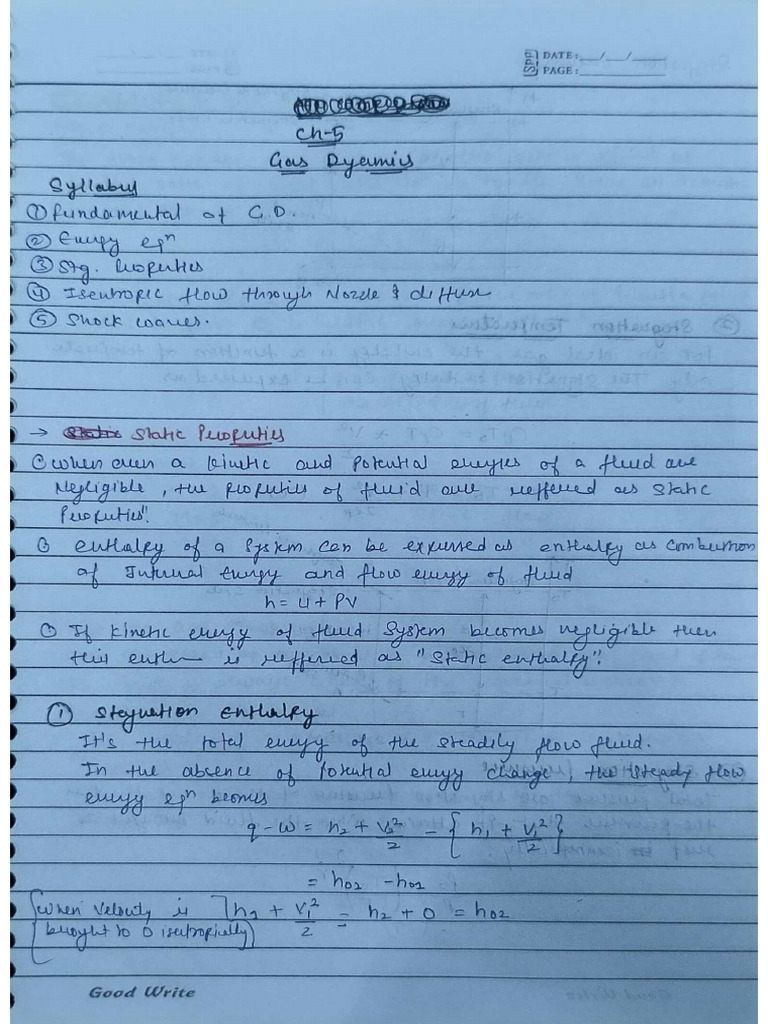 DATE: __/__/__
PAGE:
Ch-5
Gas Dyamis
Syllabus
① fundamental of G.D.
② Energy eqⁿ
③ Stg. Properties
④ Isentropic flow through Nozle & diffuse
⑤ Shock waves.
→ Static Properties
when even a kinetic and potential energies of a fluid are
Negligible, the properties of fluid are reffered as Static
Properties".
enthalpy of a System can be expressed as enthalpy as Combustion
of Internal Energy and flow energy of fluid
h = u + PV
If kinetic energy of fluid System becomes negligible then
this is reffered as "Static enthalpy".
① Stegnation Enthalpy
It's the total energy of the steadily flow fluid.
In the absence of potential energy change, the steady flow
energy eqⁿ becomes
q - w = h₂ + V₂²/2 - { h₁ + V₁²/2 }
= h₀₂ - h₀₂
{when Velocity is brought to 0 isentropically} h₂ + V₁²/2 = h₂ + 0 = h₀₂
Good Write